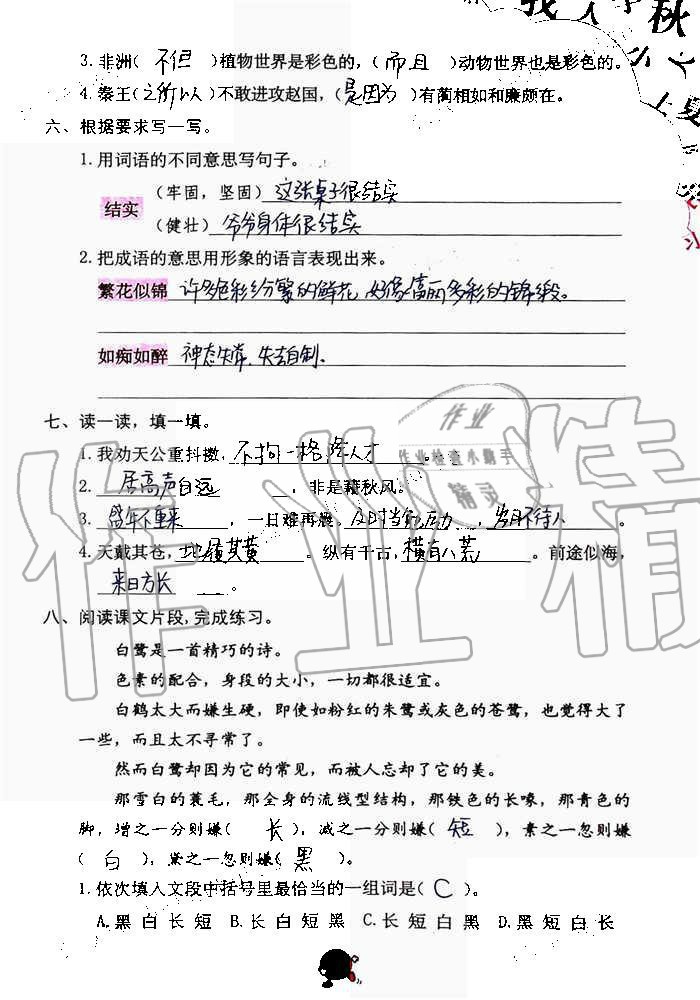 3. 非洲( 不但 )植物世界是彩色的,( 而且 )动物世界也是彩色的。
4. 秦王(之所以)不敢进攻赵国,(是因为)有蔺相如和廉颇在。
六、根据要求写一写。
1. 用词语的不同意思写句子。
结实
(牢固,坚固) 这张桌子很结实
(健壮) 爷爷身体很结实
2. 把成语的意思用形象的语言表现出来。
繁花似锦 许多色彩纷繁的鲜花,好像富丽多彩的锦缎。
如痴如醉 神态失常,失去自制。
七、读一读,填一填。
1. 我劝天公重抖擞,不拘一格降人才。
2. 居高声自远,非是藉秋风。
3. 盛年不重来,一日难再晨。及时当勉励,岁月不待人。
4. 天戴其苍,地履其黄。纵有千古,横有八荒。前途似海,
来日方长。
八、阅读课文片段,完成练习。
白鹭是一首精巧的诗。
色素的配合,身段的大小,一切都很适宜。
白鹤太大而嫌生硬,即使如粉红的朱鹭或灰色的苍鹭,也觉得大了
一些,而且太不寻常了。
然而白鹭却因为它的常见,而被人忘却了它的美。
那雪白的蓑毛,那全身的流线型结构,那铁色的长喙,那青色的
脚,增之一分则嫌( 长 ),减之一分则嫌( 短 ),素之一忽则嫌
( 白 ),黛之一忽则嫌( 黑 )。
1. 依次填入文段中括号里最恰当的一组词是( C )。
A. 黑 白 长 短 B. 长 白 短 黑 C. 长 短 白 黑 D. 黑 短 白 长
作业
作业检查小助手
精灵
作业精